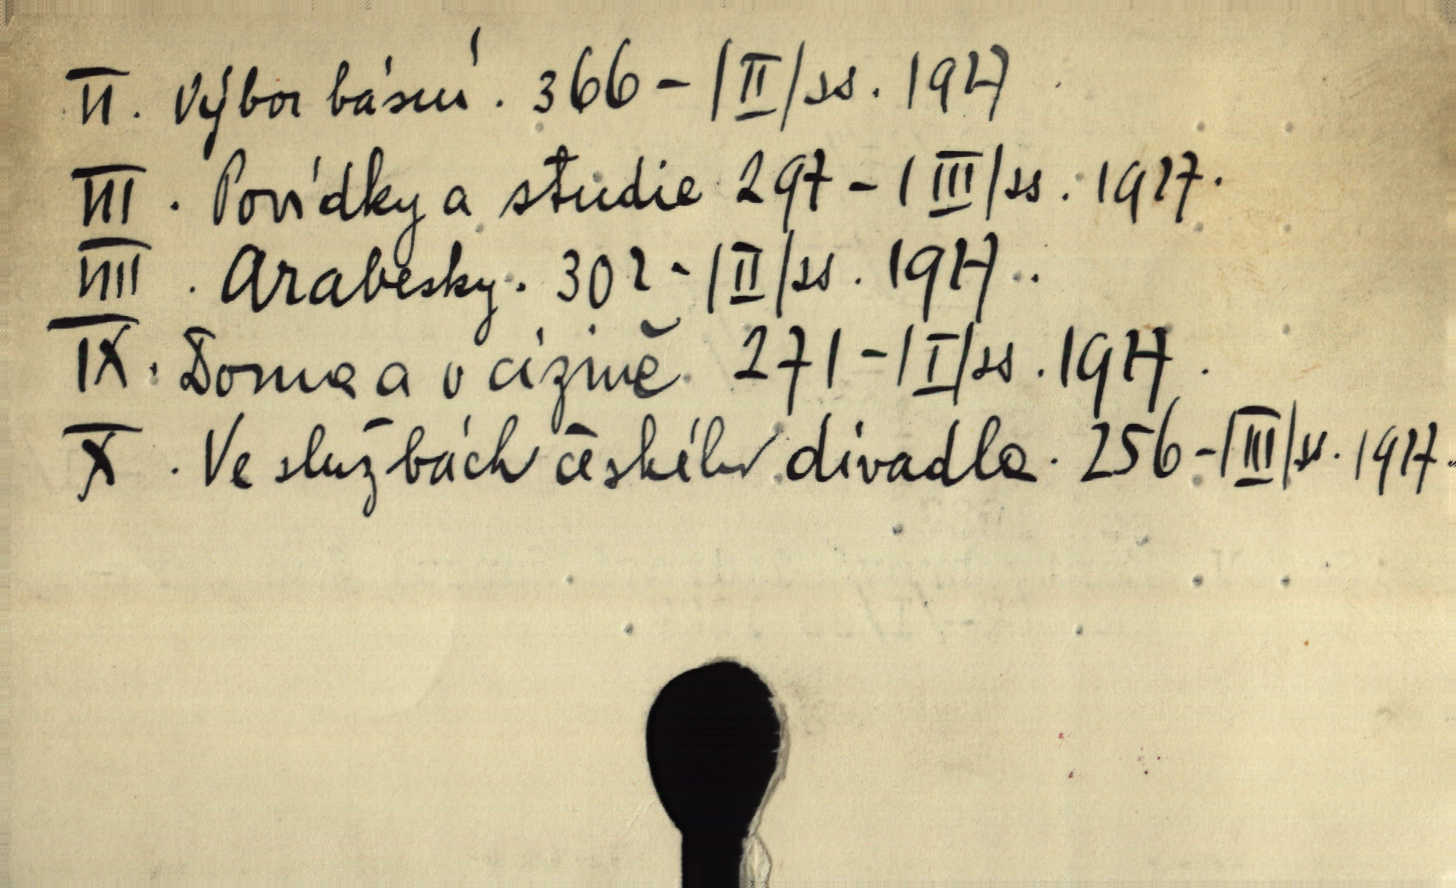 VI. Výbor básní. 366-/II/ss. 1927
VII. Povídky a studie 297-/III/ss. 1927.
VIII. Arabesky. 302-/II/ss. 1927.
IX. Doma a v cizině. 271-/I/ss. 1927.
X. Ve službách českého divadla. 256-/III/ss. 1927.